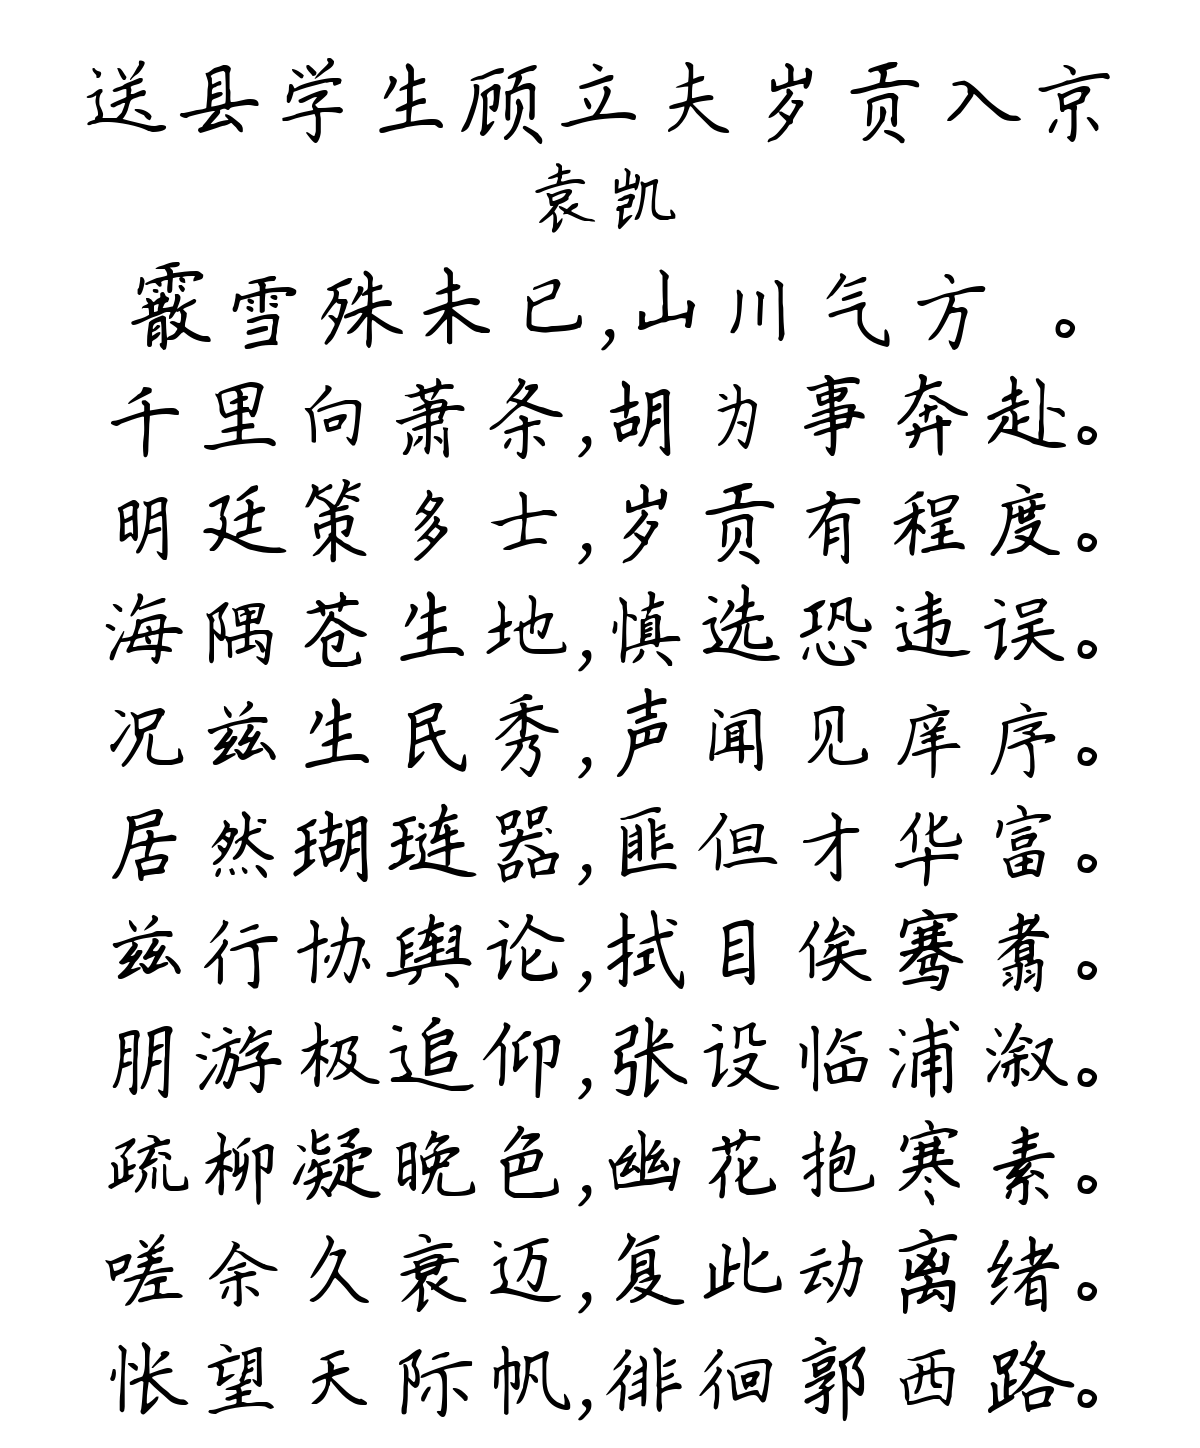 送县学生顾立夫岁贡入京
袁凯
霰雪殊未已,山川气方 。
千里向萧条,胡为事奔赴。
明廷策多士,岁贡有程度。
海隅苍生地,慎选恐违误。
况兹生民秀,声闻见庠序。
居然瑚琏器,匪但才华富。
兹行协舆论,拭目俟骞翥。
朋游极追仰,张设临浦溆。
疏柳凝晚色,幽花抱寒素。
嗟余久衰迈,复此动离绪。
怅望天际帆,徘徊郭西路。